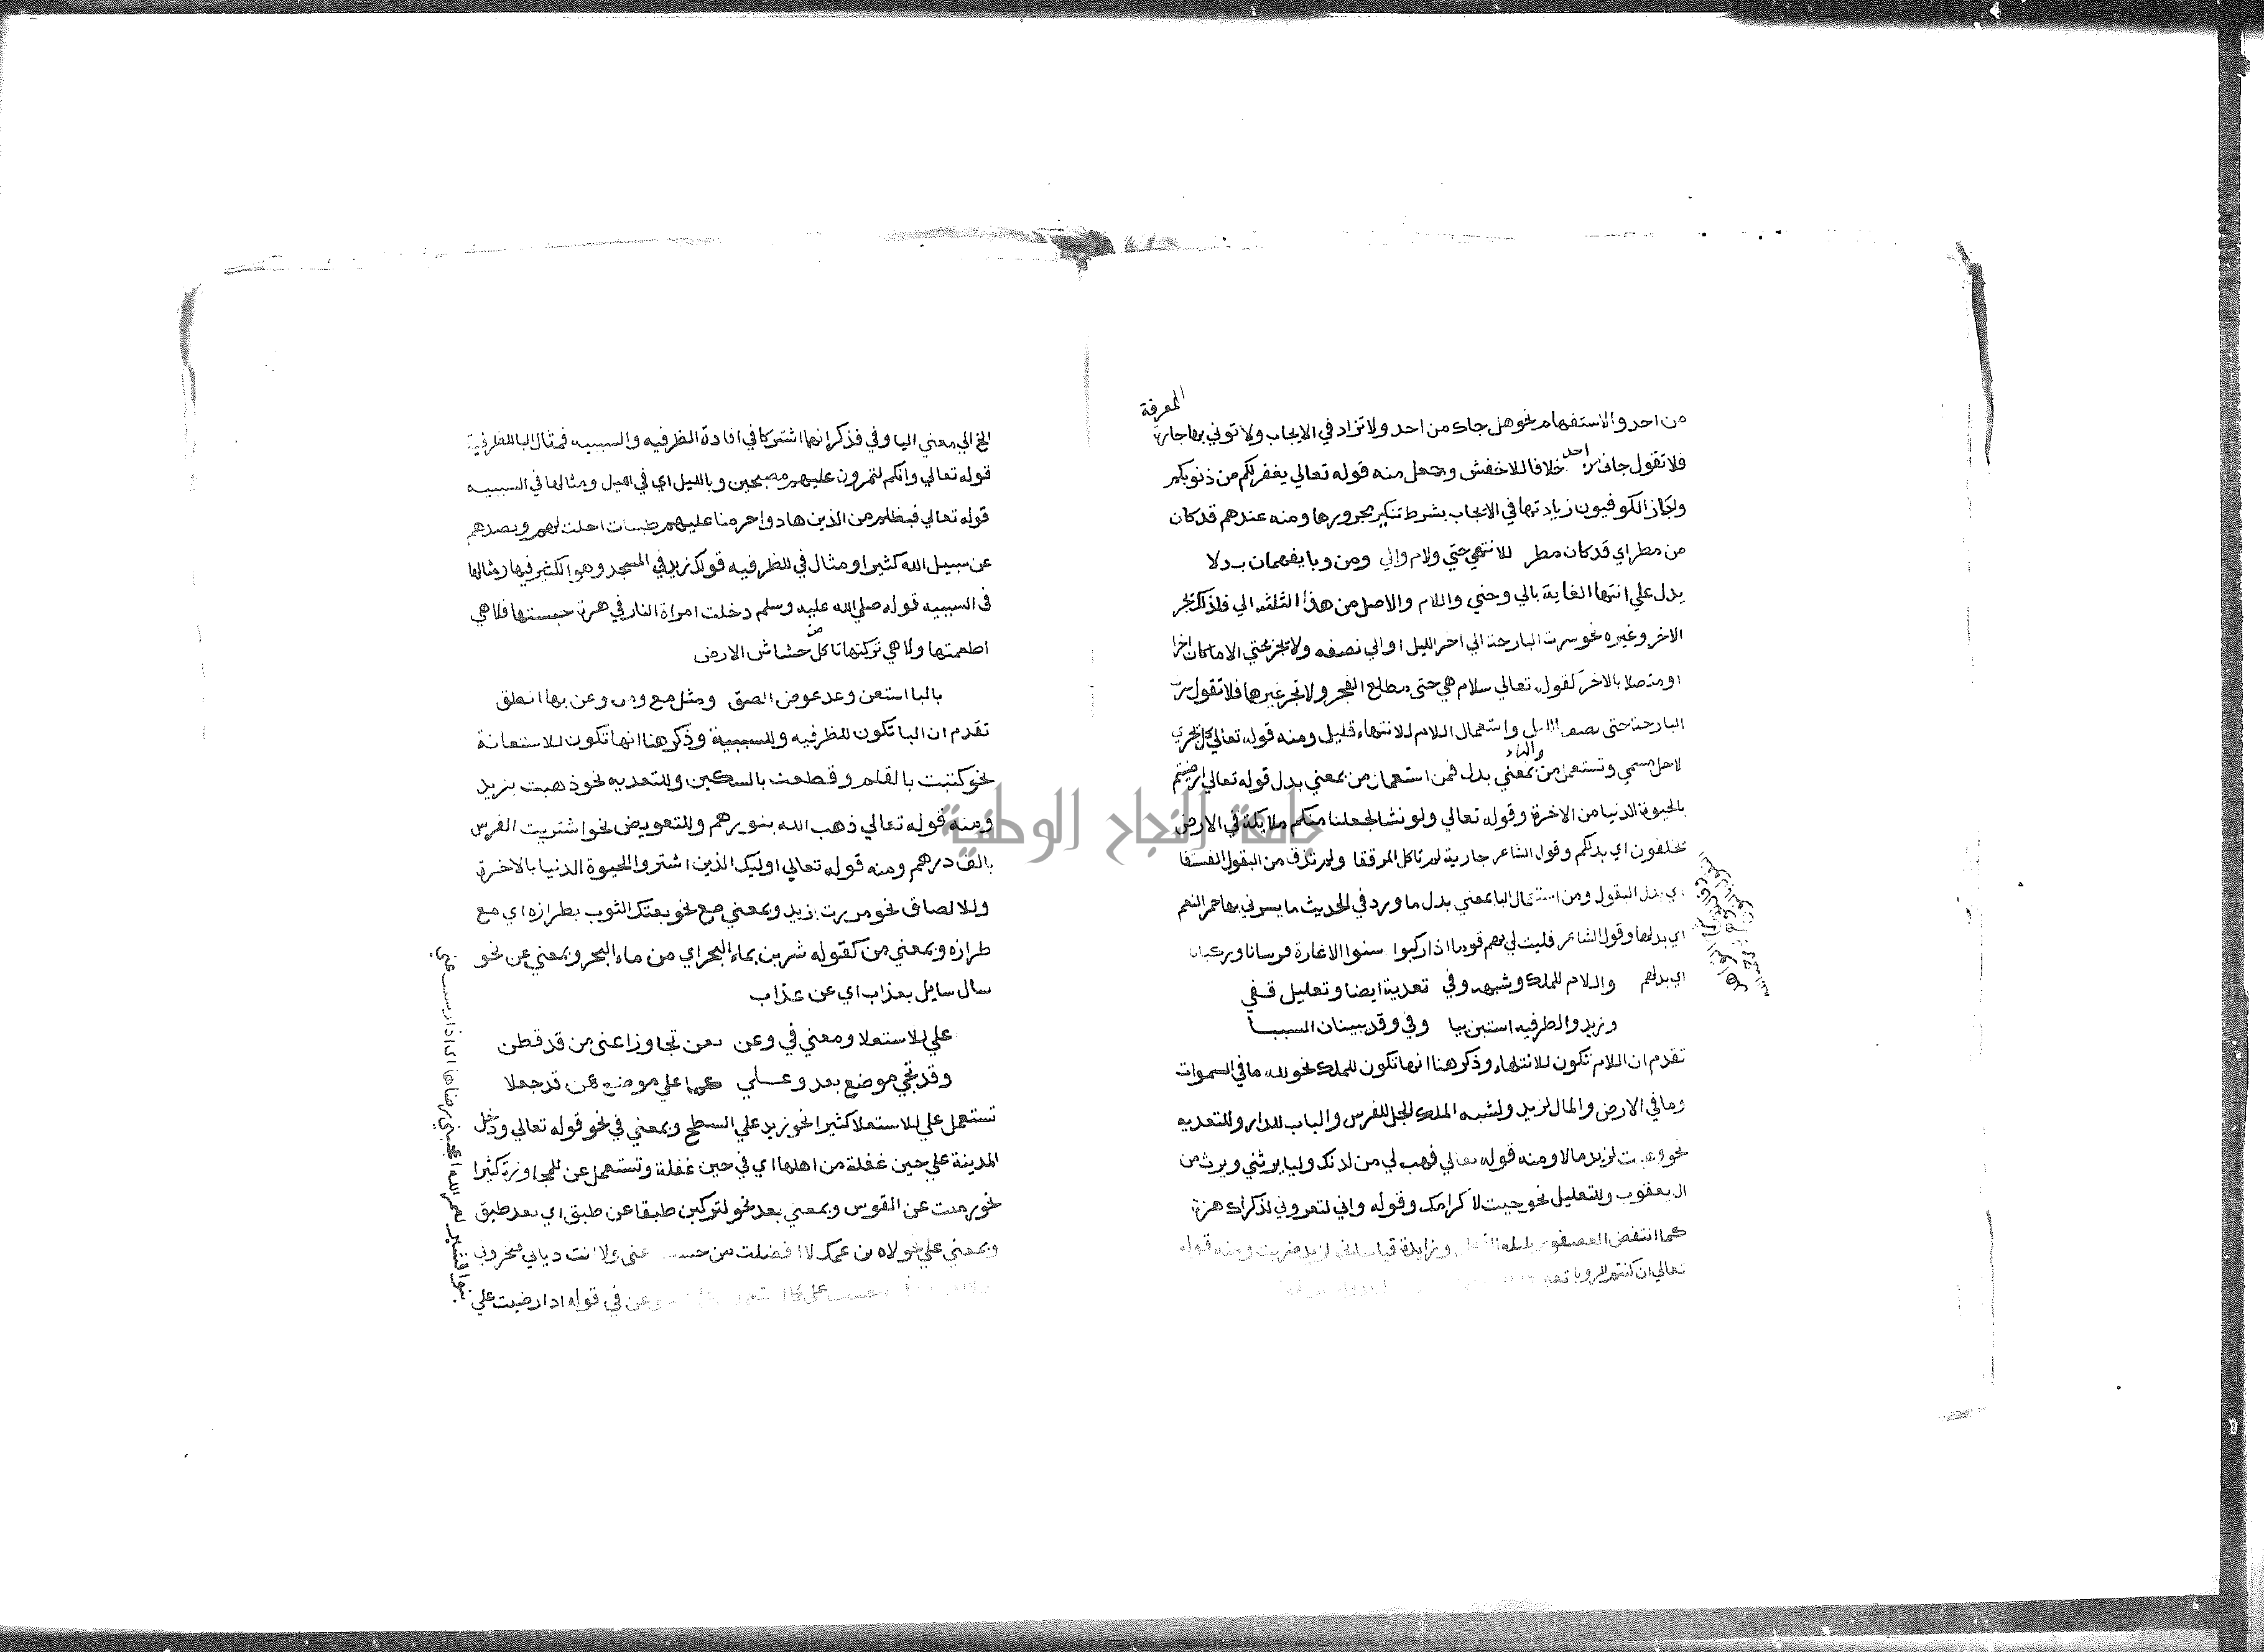 المعرفة
من احد والاستفهام نحو هل جاك من احد ولا تزاد في الايجاب ولا توتي بها جارة
فلا تقول جاني من احد خلافا للاخفش وجعل منه قوله تعالي يغفر لكم من ذنوبكم
واجاز الكوفيون زيادتها في الايجاب بشرط تنكير مجرورها ومنه عندهم قد كان
من مطر اي قد كان مطر للانتهي حتي ولام والي ومن وبا يفهمان بدلا
يدل علي انتها الغاية بالي وحتي واللام والاصل من هذه الثلثه الي فلذلك تجر
الاخر وغيره نحو سرت البارحة الي اخر الليل او الي نصفه ولا تجر بحتي الا ما كان اخرا
او متصلا بالاخر كقوله تعالي سلام هي حتى مطلع الفجر ولا تجر غيرها فلا تقول سرت
البارحة حتى نصف الليل واستعمال اللام للانتهاء قليل ومنه قوله تعالي كل يجري
لاجل مسمي وتستعمل من والباء بمعني بدل فمن استعمال من بمعني بدل قوله تعالي ارضيتم
بالحيوة الدنيا من الاخرة وقوله تعالي ولو نشا لجعلنا منكم ملايكة في الارض
يخلفون اي بدلكم وقول الشاعر جارية لم تاكل المرققا ولم تذق من البقول الفستقا
اي بدل البقول ومن استعمال البا بمعني بدل ما ورد في الحديث ما يسرني بها حمر النعم
اي بدلها وقول الشاعر فليت لي بهم قوما اذا ركبوا شنوا الاغارة فرسانا وركبانا
اي بدلهم واللام للملك وشبهه وفي تعدية ايضا وتعليل قفي
وزيد والظرفيه استبن ببا وفي وقد يبينان السببا
تقدم ان اللام تكون للانتهاء وذكر هنا انها تكون للملك نحو لله ما في السموات
وما في الارض والمال لزيد ولشبه الملك الجل للفرس والباب للدار وللتعديه
نحو وهبت لزيد مالا ومنه قوله تعالي فهب لي من لدنك وليا يرثني ويرث من
ال يعقوب وللتعليل نحو جيت لاكرامك وقوله واني لتعروني لذكراك هزة
كما انتفض العصفور بلله وزايدة قياسا نحو لزيد ضربت ومنه قوله
تعالي ان كنتم للرويا
الخ الي معني البا وفي فذكر انهما اشتركا في افادة الظرفيه والسببيه فمثال البا للظرفية
قوله تعالي وانكم لتمرون عليهم مصبحين وبالليل اي في الليل ومثالها في السببيه
قوله تعالي فبظلم من الذين هادوا حرمنا عليهم طيبات احلت لهم وبصدهم
عن سبيل الله كثيرا ومثال في للظرفيه قولك زيد في المسجد وهو الكثير فيها ومثالها
في السببيه قوله صلي الله عليه وسلم دخلت امراة النار في هرة حبستها فلا هي
اطعمتها ولا هي تركتها تاكل من خشاش الارض
بالبا استعن وعد عوض الصق ومثل مع ومن وعن بها انطق
تقدم ان البا تكون للظرفيه وللسببية وذكر هنا انها تكون للاستعانة
نحو كتبت بالقلم وقطعت بالسكين وللتعديه نحو ذهبت بزيد
ومنه قوله تعالي ذهب الله بنورهم وللتعويض نحو اشتريت الفرس
بالف درهم ومنه قوله تعالي اوليك الذين اشتروا الحيوة الدنيا بالاخرة
وللالصاق نحو مررت بزيد وبمعني مع نحو بعتك الثوب بطرازه اي مع
طرازه وبمعني من كقوله شربن بماء البحر اي من ماء البحر وبمعني عن نحو
سال سايل بعذاب اي عن عذاب
علي للاستعلا ومعني في وعن بعن تجاوزا عني من قد فطن
وقد تجي موضع بعد وعلي كما علي موضع عن قد جعلا
تستعمل علي للاستعلا كثيرا نحو زيد علي السطح وبمعني في نحو قوله تعالي ودخل
المدينة علي حين غفلة من اهلها اي في حين غفلة وتستعمل عن للمجاوزة كثيرا
نحو رميت عن القوس وبمعني بعد نحو لتركبن طبقا عن طبق اي بعد طبق
وبمعني علي نحو لاه بن عمك لا افضلت من حسب عني ولا انت دياني فتخزوني
عن في قوله اذا رضيت علي
بنو قشير لعمر الله اعجبني رضاها اي اذا رضيت عني
جامعة النجاح الوطنية